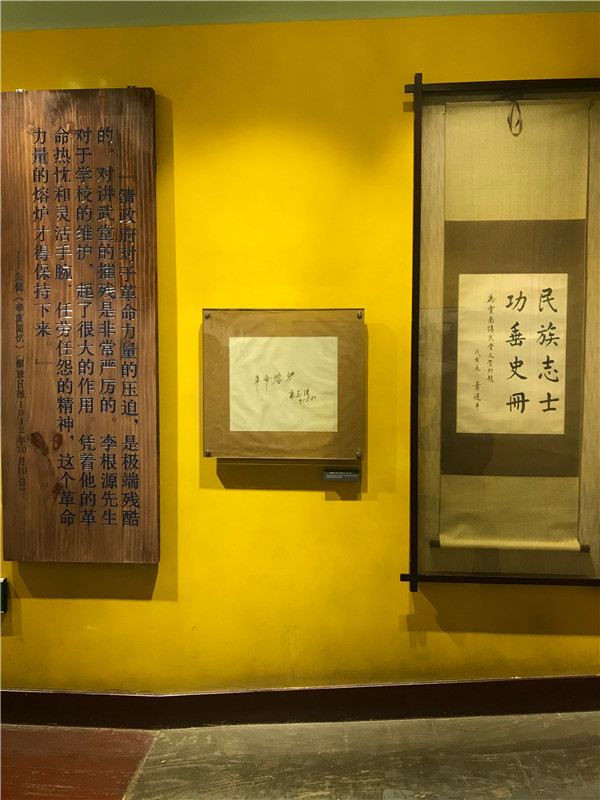 「清政府对于革命力量的压迫，是极端残酷
的。对讲武堂的摧残是非常严厉的。李根源先生
对于学校的维护，起了很大的作用。凭着他的革
命热忱和灵活手腕，任劳任怨的精神，这个革命
力量的熔炉才得保持下来。」
——朱德《辛亥回忆》（解放日报1942年10月10日）
革命熔炉
民族志士
功垂史冊
為雲南講武堂